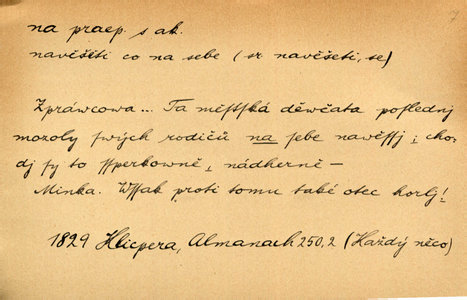 7
na praep. s ak.
navěšeti co na sebe (sr. navěšeti, se)
Zpráwcowa... Ta městská děwčata poslednj
mozoly swých rodičů na sebe nawěssj i cho-
dj sy to sperkowně, nádherně –
Minka. Wssak proti tomu také otec horlj!
1829 Klicpera, Almanach 250,2 (Každý něco)